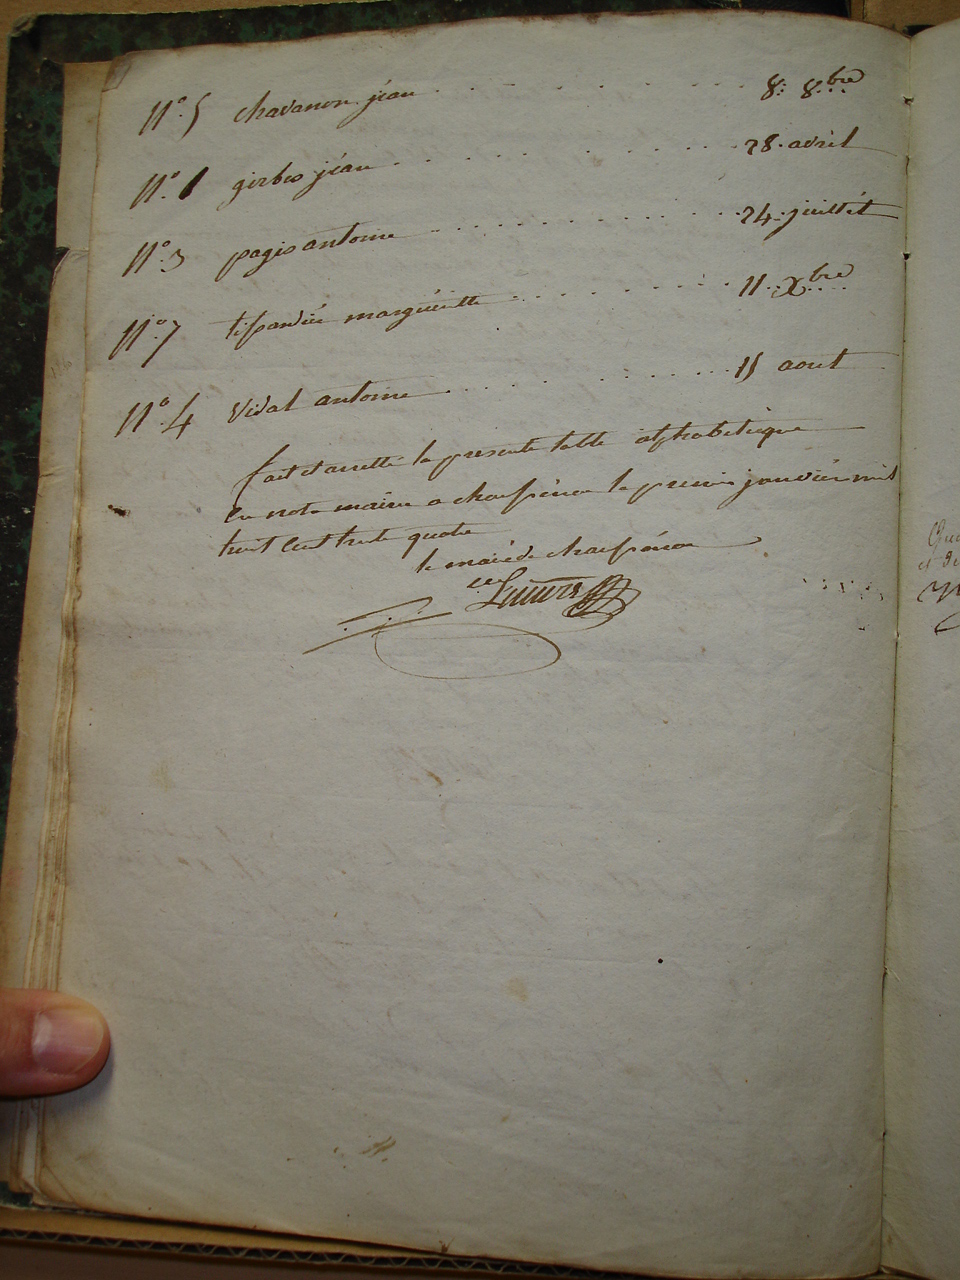 N°. 5 chavanon jéan . . . . . . . . . . 8. 8.bre
N°. 1 girbes jéan . . . . . . . . . . . 28. avril
N°. 3 pagis antoine . . . . . . . . . . 24. juillét
N°. 7 marguéritte . . . . . . . . . . 11. Xbre
N°. 4 vidal antoine . . . . . . . . . . 15 aout
fait et arretté la présente table alphabétique
en notre mairie a le premier janviér mil
huit cent trente quatre
le maire de